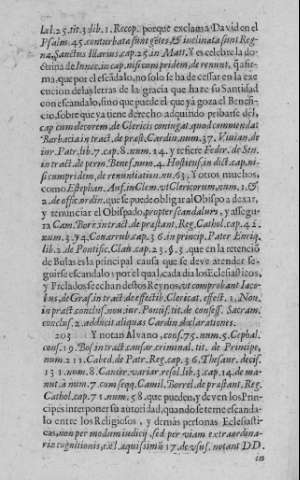 la l.25.tit.3.lib.1. Recop. porque exclama David en el
Psalm.45. conturbatæ sunt gẽtes, & inclinata sunt Reg-
na, Sanctus Ilarius, cap.25. in Matt. Y es celebre la do-
ctrina de Innoc. in cap. nisi cum pridem, de renunt. q̃ afir-
ma, que por el escãdalo, no solo se ha de cessar en la exe-
cucion de las letras de la gracia que haze su Santidad
con escandalo, sino que puede el que yà goza el Benefi-
cio, sobre que yà tiene derecho adquirido privarse del,
cap. cum decorem, de Clericis coniugat. quod commendat
Barbacia in tract. de præst. Cardin. num.37. Vivian. de
iur. Patr. lib.7. cap.8. num.14. y refiere Feder. de Sen.
in tract. de perm. Benef. num.4. Hostiens. in dict. cap. ni-
si cum pridem, de renuntiation. nu.63. Y otros muchos,
como Estephan. Auf. in Clem. ut Clericorum, num.1. &
2. de offic. ordin. que se puede obligar al Obispo a dexar,
y renunciar el Obispado, propter scandalum, y assegu-
ra Cam. Borr. in tract. de præstant. Reg. Cathol. cap.42.
num.3. y 4. Covarrub. cap.36. in princip. Pater Enriq.
lib.2. de Pontific. Clav. cap.23. §.3. que en la retencio
de Bulas es la principal causa que se deve atender se-
guirse escandalo: por el qual, cada dia los Eclesiasticos,
y Prelados se echan destos Reynos, ut comprobant Iaco-
bus, de Graf. in tract. de effectib. Clericat. effect.1. Non.
in pract. conclus. non iur. Pontif. tit. de conseff. Sacram.
conclus.2. adducit aliquas Cardin. declarationes.
203 Y notan Alvano, cons.75. num.5. Cephal.
cons.19. Bos. in tract. causar. criminal. tit. de Principe,
num.211. Cabed. de Patr. Reg. cap.36. Thesaur. decis.
131. num.8. Cancer. variar. resol. lib.3. cap.14. de ma-
nut. à num.7. cum seqq. Camil. Borrel. de præstant. Reg.
Cathol. cap.71. num.58. que pueden, y deven los Prin-
cipes interponer su autoridad, quando se teme escanda-
lo entre los Religiosos, y demás personas Eclesiasti-
cas, non per modum iudicij, sed per viam extraordina-
riæ cognitionis,
17. de usuf. notant DD.
in